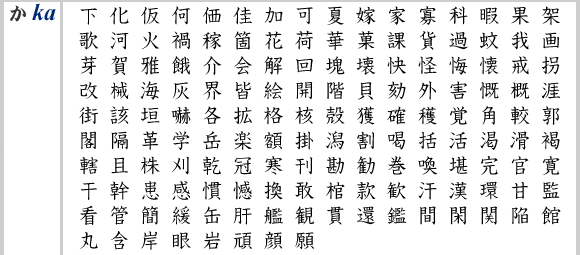 か ka 下 化 仮 何 価 佳 加 可 夏 嫁 家 寡 科 暇 果 架
歌 河 火 禍 稼 箇 花 荷 華 菓 課 貨 過 蚊 我 画
芽 賀 雅 餓 介 会 解 回 塊 壊 快 怪 悔 懐 戒 拐
改 械 海 灰 界 皆 絵 開 階 貝 劾 外 害 慨 概 涯
街 該 垣 嚇 各 拡 格 核 殻 獲 確 穫 覚 角 較 郭
閣 隔 革 学 岳 楽 額 掛 潟 割 喝 括 活 渇 滑 褐
轄 且 株 刈 乾 冠 寒 刊 勘 勧 巻 喚 堪 完 官 寛
干 幹 患 感 慣 憾 換 敢 棺 款 歓 汗 漢 環 甘 監
看 管 簡 緩 缶 肝 艦 観 貫 還 鑑 間 閑 関 陥 館
丸 含 岸 眼 岩 頑 顔 願